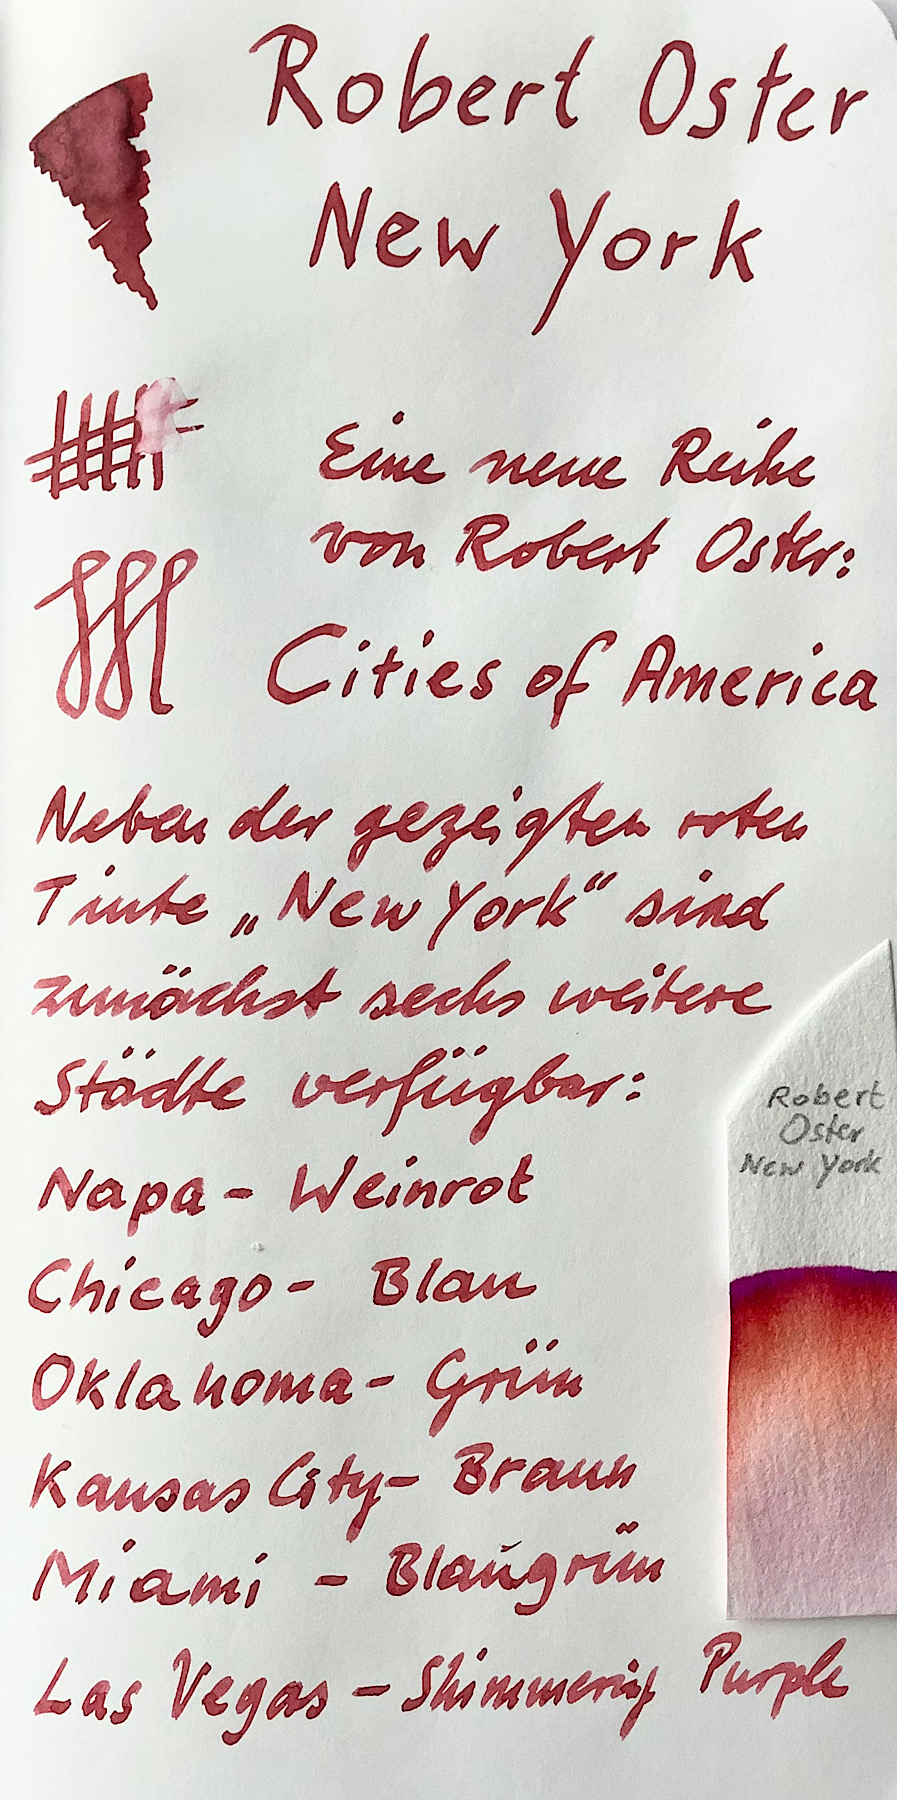 Robert Oster
New York
Eine neue Reihe
von Robert Oster:
Cities of America
Neben der gezeigten roten
Tinte „New York“ sind
zunächst sechs weitere
Städte verfügbar:
Napa - Weinrot
Chicago - Blau
Oklahoma - Grün
Kansas City - Braun
Miami - Blaugrün
Las Vegas - Shimmering Purple
Robert
Oster
New York